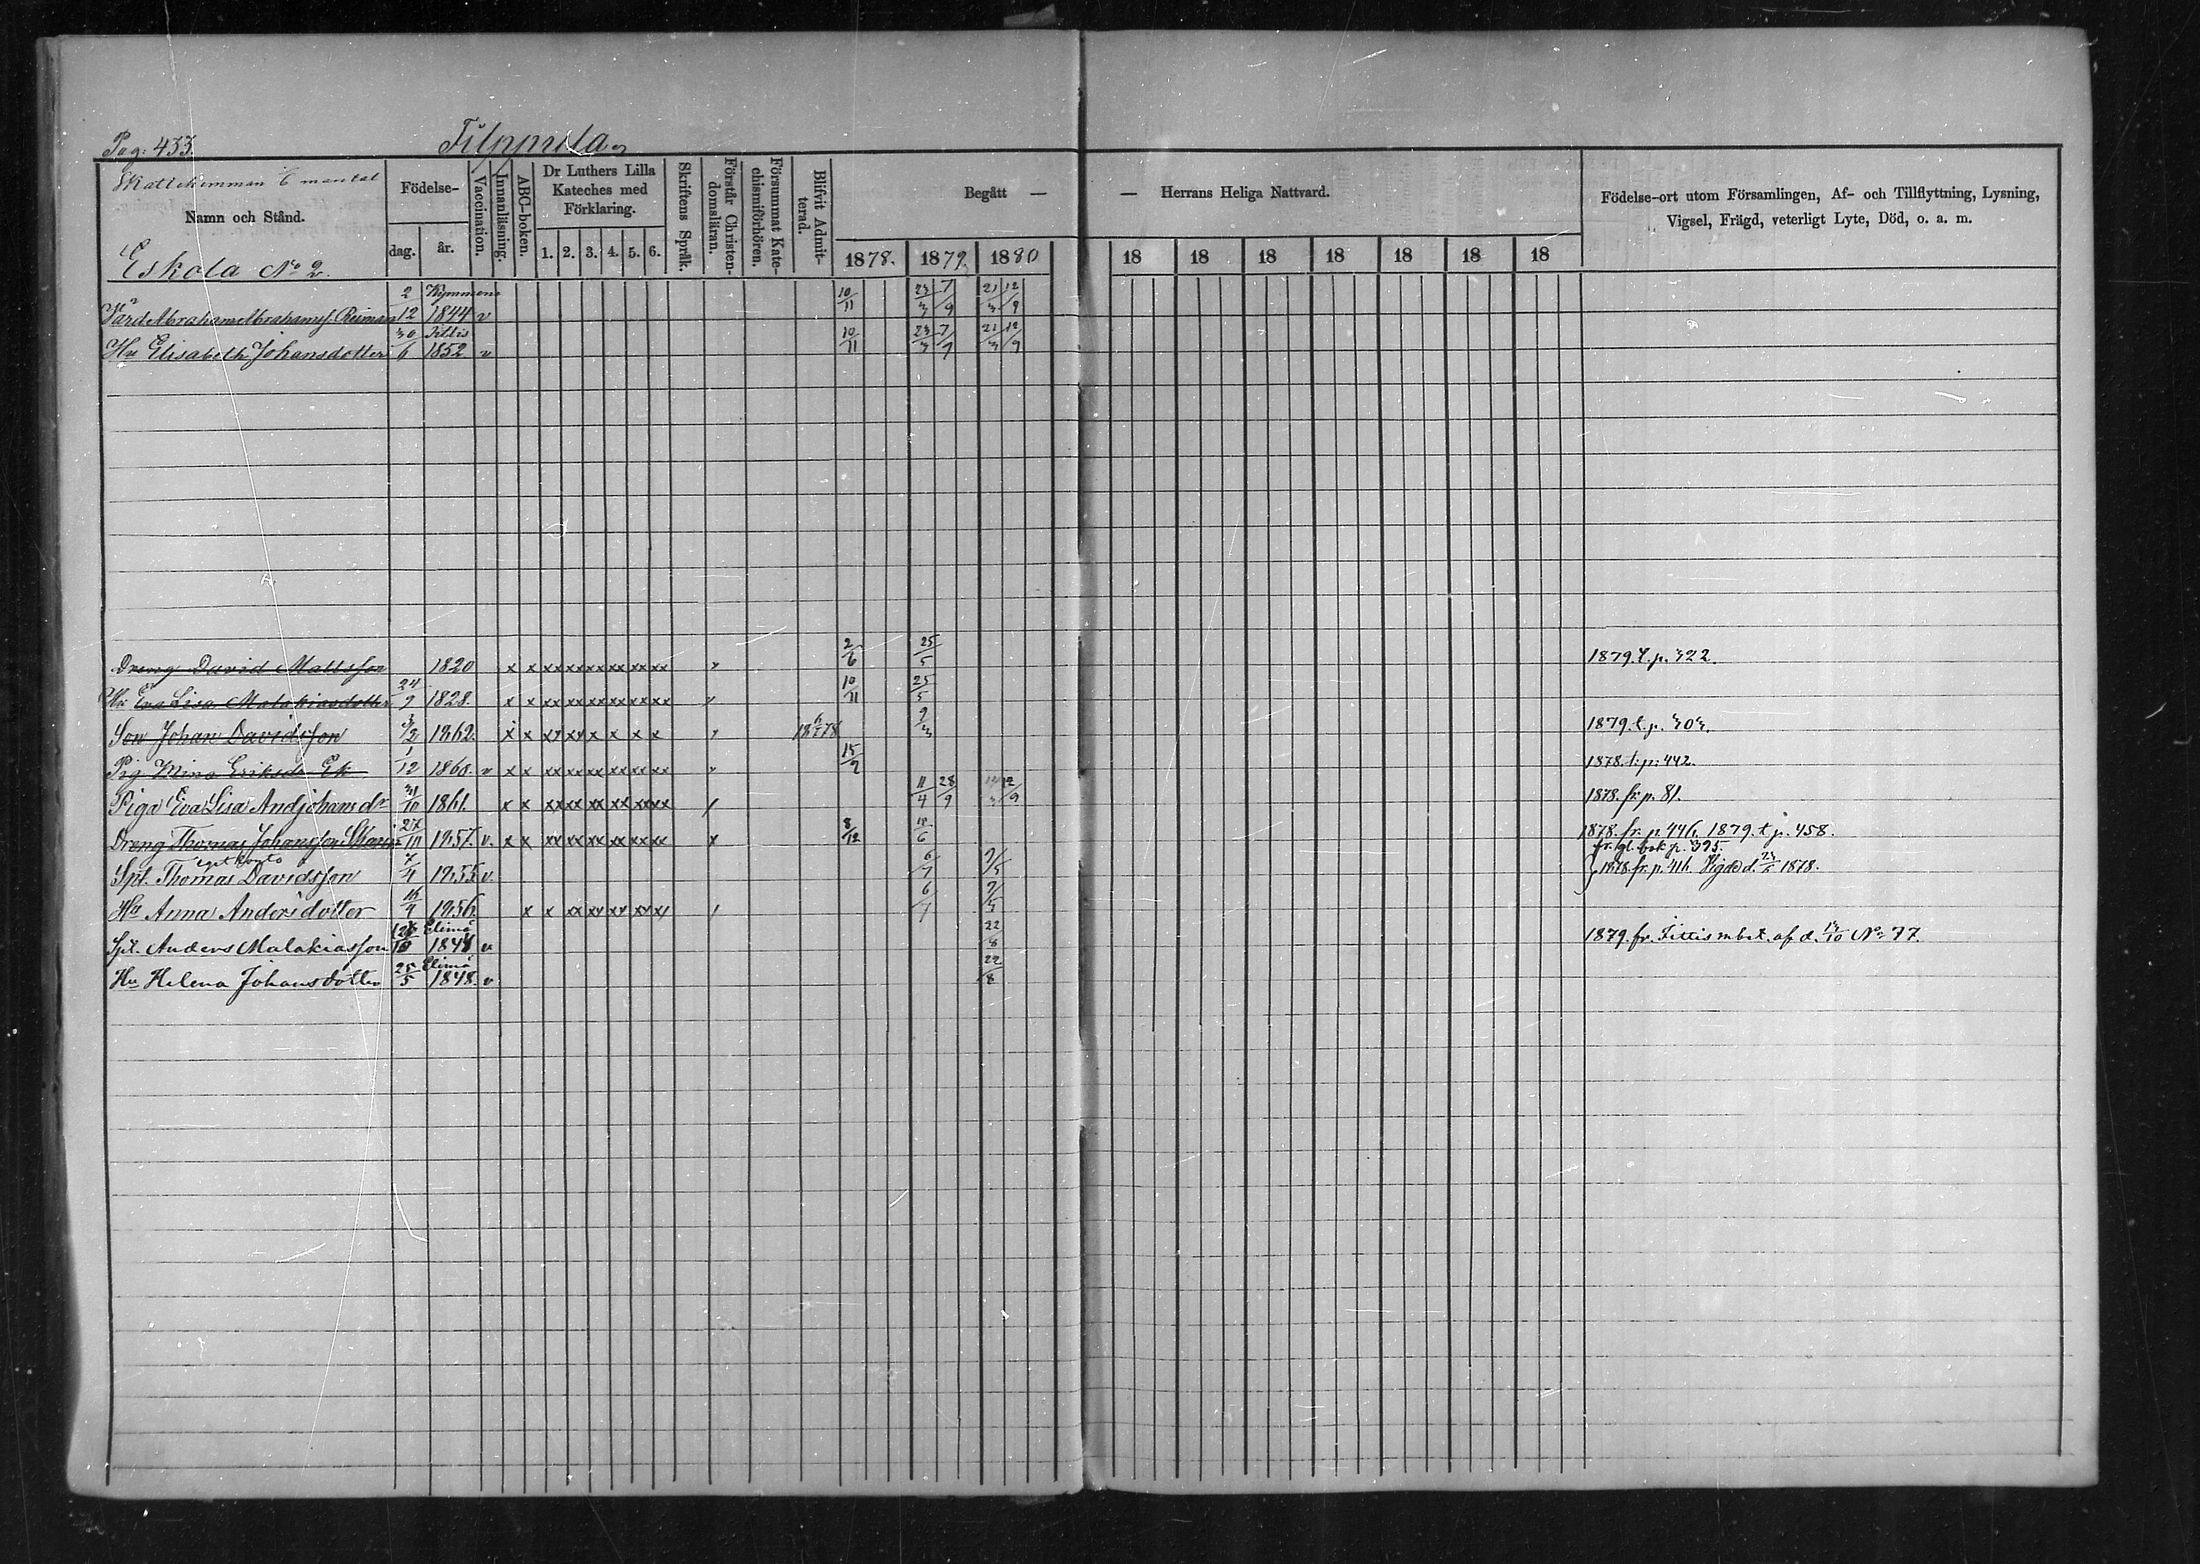 Pag: 433.
Filppula
Skattehemman mantal
Namn och Stånd.
Eskola No 2.
Födelse-
dag. år.
Vaccination.
Innanläsning.
ABC-boken.
Dr Luthers Lilla
Kateches med
Förklaring.
1. 2. 3. 4. 5. 6.
Skriftens Språk.
Förstår Christen-
domsläran.
Försummat Kate-
chismiförhören.
Blifvit Admit-
terad.
Begått —
1878. 1879. 1880
— Herrans Heliga Nattvard.
18 18 18 18 18 18 18
Födelse-ort utom Församlingen, Af- och Tillflyttning, Lysning,
Vigsel, Frägd, veterligt Lyte, Död, o. a. m.
Abraham Abrahamsf. Reiman 2/12 Kymmene 1844 v 10/11 23/3 7/9 21/3 12/9
Hu Elisabeth Johansdotter 30/6 Sittis 1852 v 10/11 23/3 7/9 21/3 12/9
Dreng David Mattsson 1820 x x xx xx xx xx xx xx 2/6 25/5 1879. t. p. 322.
Hu Eva Lisa Malakiasdotter 24/9 1828. x x xx xx xx xx xx xx 10/11 25/5
Son Johan Davidsson 1862. x x xx xx x x x x 9/3 1879. t. p. 303.
Pig Mina Eriksdr Ek 1/12 1860. v x x xx xx xx xx xx xx 15/9 1878. t. p. 442.
Piga Eva Lisa Andjohansdr 31/10 1861. x x xx xx xx xx xx xx 11/4 28/9 12/9 1878. fr. p. 81.
Dreng Thomas Johansson 27/10 1857. v. x x xx xx xx xx xx xx x 8/12 1878. fr. p. 446. 1879. t. p. 458.
fr. gl. bok p. 395.
eget konto
Spt. Thomas Davidsson 1855 v. 6/7 1878. fr. p. 416. Vigde d. 1878.
Hu Anna Andersdotter 1856. x x xx xx xx xx xx 6/7
Spt. Anders Malakiasson Elimä v 22/8 1879. fr. Sittis m bet. af d. No 77.
Hu Helena Johansdotter 25/5 Elimä 1848. v 22/8